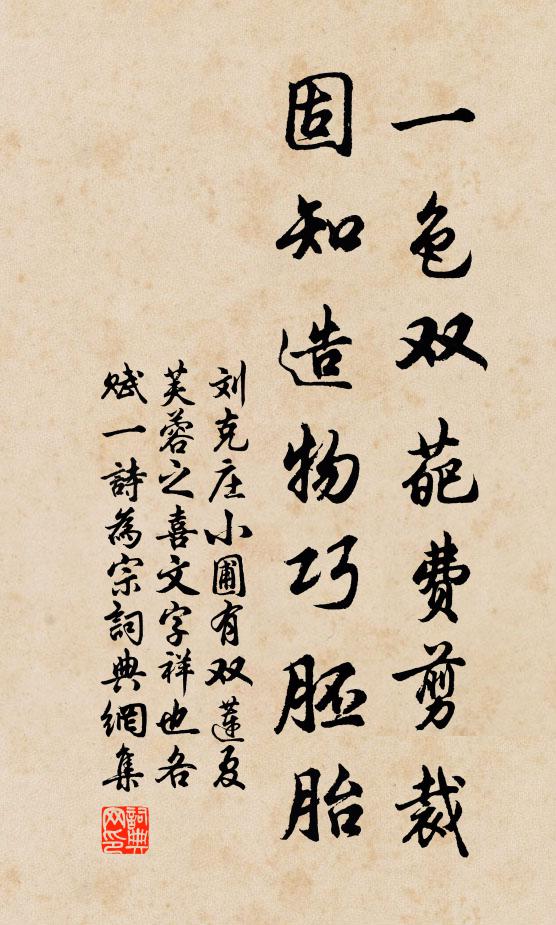 一色双葩费剪裁
固知造物巧胚胎
刘克庄小圃有双莲夏
芙蓉之喜文字祥也各
赋一詩為宗詞典網集
詞典网印